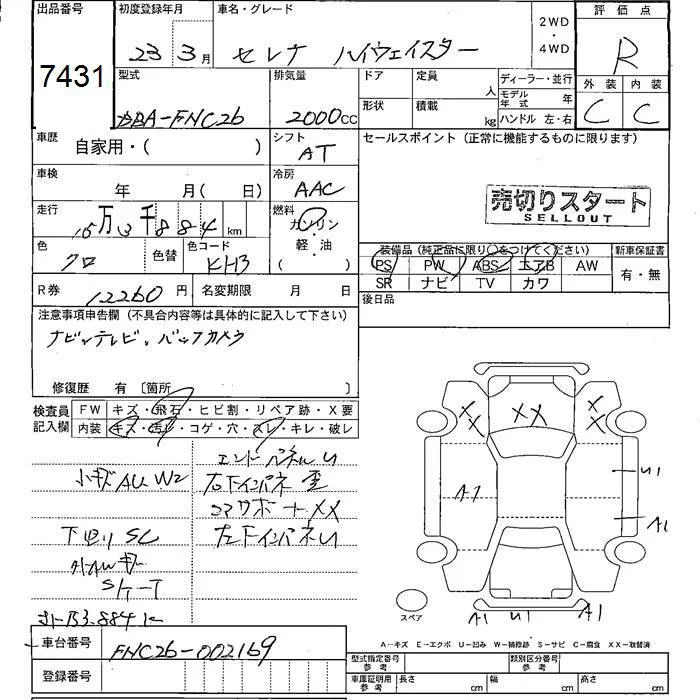 出品番号
7431
初度登録年月
23 3月
車名・グレード
セレナ ハイウェイスター
2WD
・
4WD
評価点
R
外装 内装
C C
型式
DBA-FNC26
排気量
2000cc
ドア
定員
人
形状
積載
kg
ディーラー・並行
モデル年式 年
ハンドル 左・右
車歴
自家用・( )
シフト
AT
セールスポイント (正常に機能するものに限ります)
売切りスタート
SELLOUT
車検
年 月( 日)
冷房
AAC
走行
15万 3千884 km
燃料
ガソリン
・
軽・油
( )
色
クロ
色替
色コード
KH3
装備品(純正品に限り○をつけてください)
PS PW ABS エアB AW
SR ナビ TV カワ
新車保証書
有・無
後日品
R券
12260 円
名変期限 月 日
注意事項申告欄(不具合内容等は具体的に記入して下さい)
ナビ、テレビ、バックカメラ
修復歴 有 〔箇所
検査員記入欄
FW キズ・飛石・ヒビ割・リペア跡・X要
内装 キズ・汚レ・コゲ・穴・スレ・キレ・破レ
エンドパネルU
小キズAU W2
右下インパネ
コアサポ+XX
下回りSC
左下インパネU
車台番号
FNC26-002169
登録番号
XX
XX
XX
A1
U1
A1
A1
U1
A1
スペア
A…キズ E…エクボ U…凹み W…補修跡 S…サビ C…腐食 XX…取替済
型式指定番号
参考
類別区分番号
参考
車庫証明用
参考
長さ cm
幅 cm
高さ cm